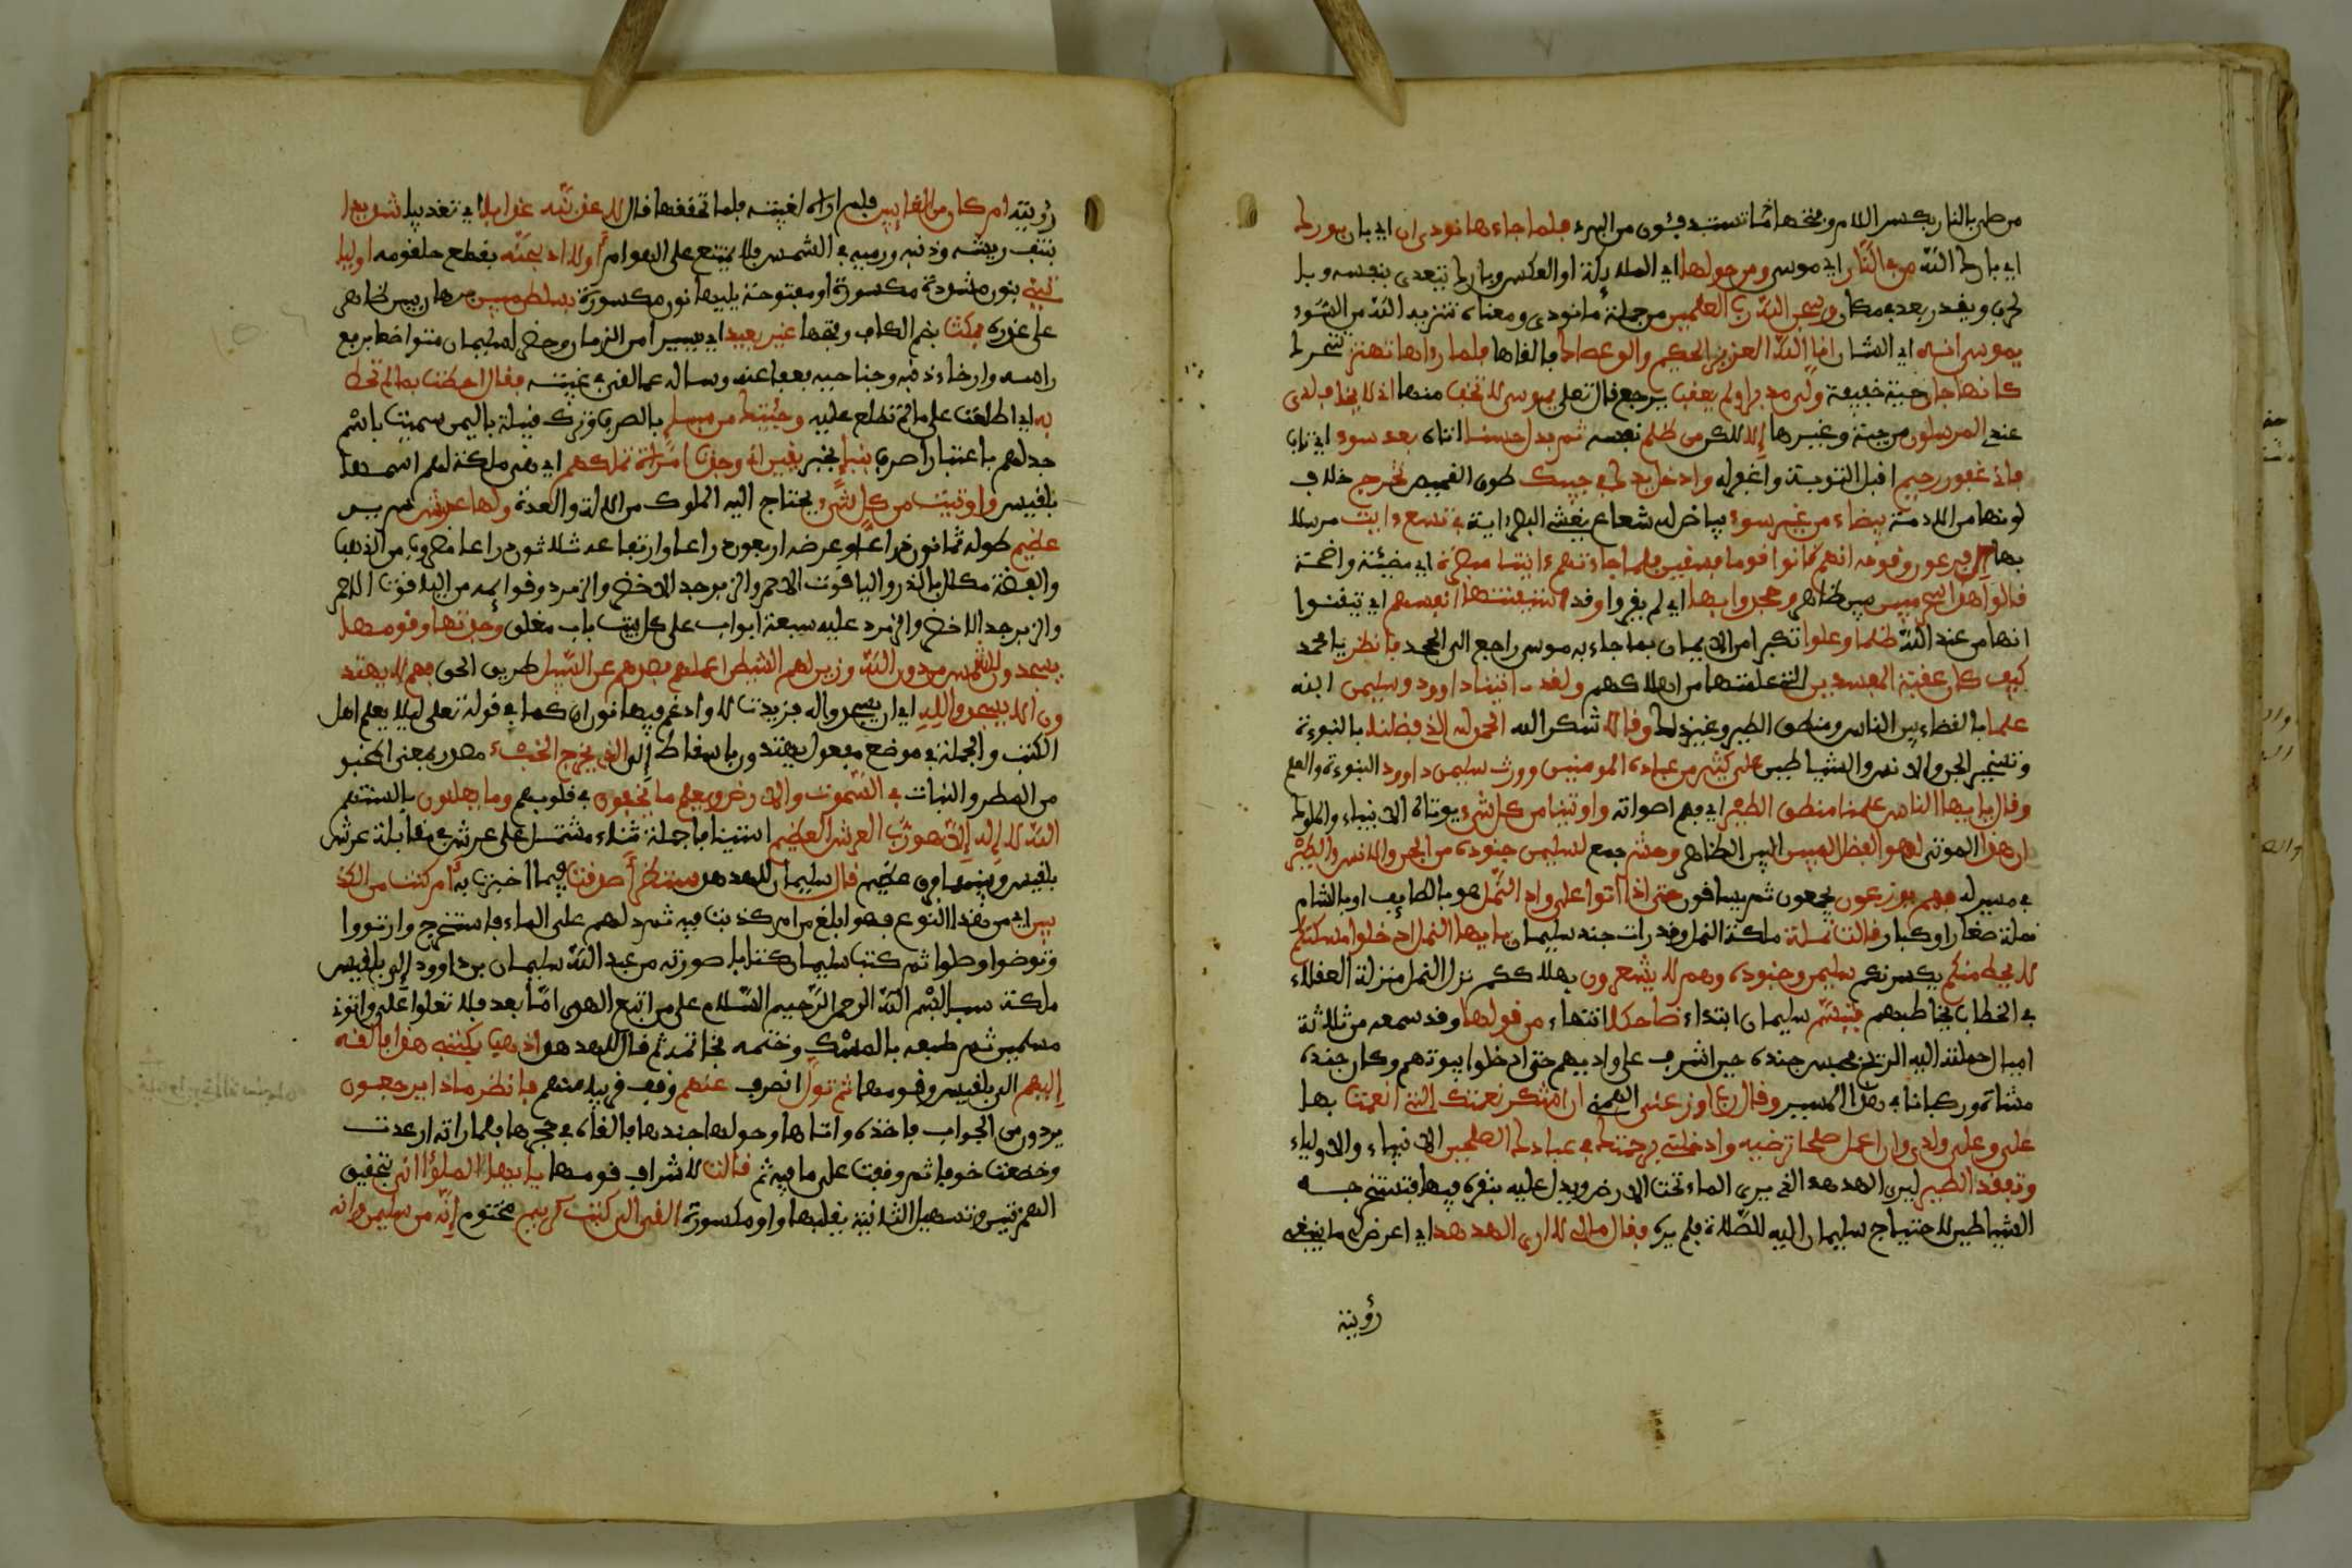 من صلى بالنار بكسر اللام وفتحها أي تستدفئون من البرد فلما جاءها نودي ان اي بان بورك
اي بارك الله من في النار اي موسى ومن حولها اي الملائكة او العكس وبارك يتعدى بنفسه وبا
لحرف ويقدر بعد في مكان وسبحن الله رب العلمين من جملة ما نودي ومعناه تنزيه الله من السوء
يموسى انه اي الشان انا الله العزيز الحكيم والق عصاك فالقاها فلما رءاها تهتز تتحرك
كانها جان حية خفيفة ولى مدبرا ولم يعقب يرجع قال تعلى يموسى لا تخف منها اني لا يخاف لدي
عندي المرسلون من حية وغيرها إلا لكن من ظلم نفسه ثم بدل حسنا اتاه بعد سوء اي تاب
فاني غفور رحيم اقبل التوبة واغفر له وادخل يدك في جيبك طوق القميص تخرج خلاف
لونها من الادمة بيضاء من غير سوء بياض لها شعاع يغشى البصر اية في تسع ءايت مرسلا
بها إلى فرعون وقومه انهم كانوا قوما فسقين فلما جاءتهم ءايتنا مبصرة اي مضيئة واضحة
قالوا هذا سحر مبين بين ظاهر وجحدوا بها اي لم يقروا وقد استيقنتها انفسهم اي تيقنوا
انها من عند الله ظلما وعلوا تكبرا من الايمان بما جاء به موسى راجع الى الجحد فانظر يا محمد
كيف كان عقبة المفسدين التي علمتها من اهلاكهم ولقد ءاتينا داوود وسليمن ابنه
علما بالقضاء بين الناس ومنطق الطير وغير ذلك وقالا شكرا لله الحمد لله الذي فضلنا بالنبوءة
وتسخير الجن والانس والشياطين على كثير من عباده المومنين وورث سليمن داوود النبوءة والعلم
وقال يا ايها الناس علمنا منطق الطير اي فهم اصواته واوتينا من كل شيء يوتاه الانبياء والملوك
ان هذا الموتى لهو الفضل المبين البين الظاهر وحشر جمع لسليمن جنوده من الجن والانس والطير
في مسير له فهم يوزعون يجمعون ثم يساقون حتى اذا اتوا على واد النمل هو بالطايف او بالشام
نملة صغارا وكبار قالت نملة ملكة النمل وقد رات جند سليمان يا ايها النمل ادخلوا مسكنكم
لا يحطمنكم يكسرنكم سليمن وجنوده وهم لا يشعرون بهلاككم نزل النمل منزلة العقلاء
في الخطاب بخطابهم فتبسم سليمان ابتداء ضاحكا انتهاء من قولها وقد سمعه من ثلاثة
اميال حملته اليه الريح فحبس جنده حين اشرف على واديهم حتى دخلوا بيوتهم وكان جنده
مشاة وركبانا في هذا المسير وقال رب اوزعني الهمني ان اشكر نعمتك التي انعمت بها
علي وعلى ولدي وان اعمل صلحا ترضيه وادخلني برحمتك في عبادك الصلحين الانبياء والاولياء
وتفقد الطير ليرى الهدهد الذي يرى الماء تحت الارض ويدل عليه بنقره فيها فتستخرجه
الشياطين لاحتياج سليمان اليه للصلاة فلم يره فقال مالي لا ارى الهدهد اي اعرض لي ما يمنعني
رؤيته
رؤيته ام كان من الغايبين فلم اره لغيبته فلما تحققها قال لاعذبنه عذابا اي تعذيبا شديدا
بنتف ريشه وذنبه ورميه في الشمس فلا يمتنع على الهوام أو لاذبحنه بقطع حلقومه او ليا
تيني بنون مشددة مكسورة او مفتوحة يليها نون مكسورة بسلطن مبين برهان بين ظاهر
على عذره فمكث بضم الكاف وفتحها غير بعيد اي يسيرا من الزمان وحضر لسليمان متواضعا برفع
راسه وارخاء ذنبه وجناحيه فعفا عنه وساله عما لقي في غيبته فقال احطت بما لم تحط
به اي اطلعت على ما لم تطلع عليه وجئتك من سبا بالصرف وتركه قبيلة باليمن سميت باسم
جد لهم باعتباره صرف بنبإ بخبر يقين اني وجدت امراة تملكهم اي هي ملكة لهم اسمها
بلقيس واوتيت من كل شيء يحتاج اليه الملوك من الالة والعدة ولها عرش سرير
عظيم طوله ثمانون ذراعا وعرضه اربعون ذراعا وارتفاعه ثلاثون ذراعا مضروب من الذهب
والفضة مكلل بالدر والياقوت الاحمر والزبرجد الاخضر والزمرد وقوايمه من الياقوت الاحمر
والزبرجد الاخضر والزمرد عليه سبعة ابواب على كل بيت باب مغلق وجدتها وقومها
يسجدون للشمس من دون الله وزين لهم الشيطن اعملهم فصدهم عن السبيل طريق الحق فهم لا يهتد
ون الا يسجدوا لله اي ان يسجدوا له فزيدت لا وادغم فيها نون ان كما في قوله تعلى ليلا يعلم اهل
الكتب والجملة في موضع مفعول يهتدون باسقاط إلى الذي يخرج الخبء مصدر بمعنى المخبو
من المطر والنبات في السموت والارض ويعلم ما يخفون في قلوبهم وما يعلنون بالسنتهم
الله لا إله إلا هو رب العرش العظيم استيناف جملة ثناء مشتمل على عرش في مقابلة عرش
بلقيس وبينهما بون عظيم قال سليمان للهدهد سننظر أصدقت فيما اخبرتنا به أم كنت من الكذ
بين اي من هذا النوع فهو ابلغ من ام كذبت فيه ثم دلهم على الماء فاستخرج وارتووا
وتوضوا وصلوا ثم كتب سليمان كتابا صورته من عبد الله سليمان بن داوود إلى بلقيس
ملكة سبا بسم الله الرحمن الرحيم السلام على من اتبع الهدى اما بعد فلا تعلوا علي واتوني
مسلمين ثم طبعه بالمسك وختمه بخاتمه ثم قال للهدهد اذهب بكتبي هذا فالقه
إليهم الى بلقيس وقومها ثم تول انصرف عنهم وقف قريبا منهم فانظر ماذا يرجعون
يردون من الجواب فاخذه واتاها وحولها جندها فالقاه في حجرها فلما راته ارعدت
وخضعت خوفا ثم وقفت على ما فيه ثم قالت لاشراف قومها يا ايها الملؤا اني بتحقيق
الهمزتين وتسهيل الثانية بقلبها واوا مكسورة القي الي كتب كريم مختوم إنه من سليمن وانه